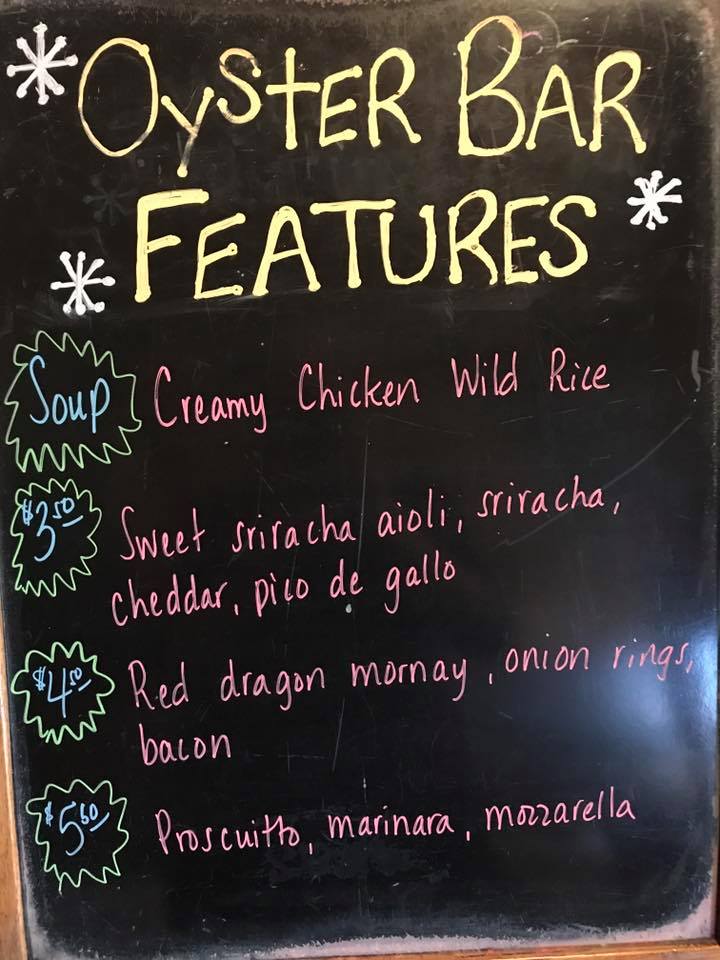 Oyster Bar
Features
Soup Creamy Chicken Wild Rice
$3.50 Sweet sriracha aioli, sriracha,
cheddar, pico de gallo
$4.50 Red dragon mornay, onion rings,
bacon
$5.60 Proscuitto, marinara, mozzarella